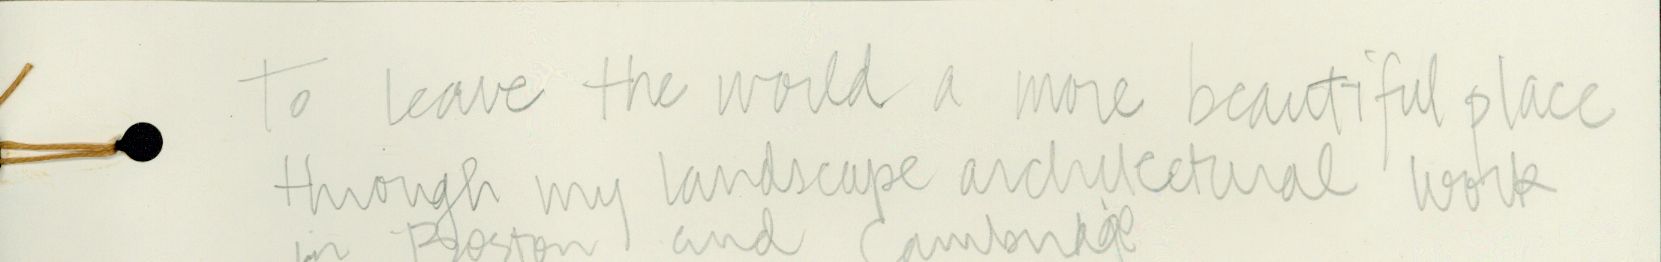 To leave the world a more beautiful place
through my landscape architectural work
in Boston and Cambridge